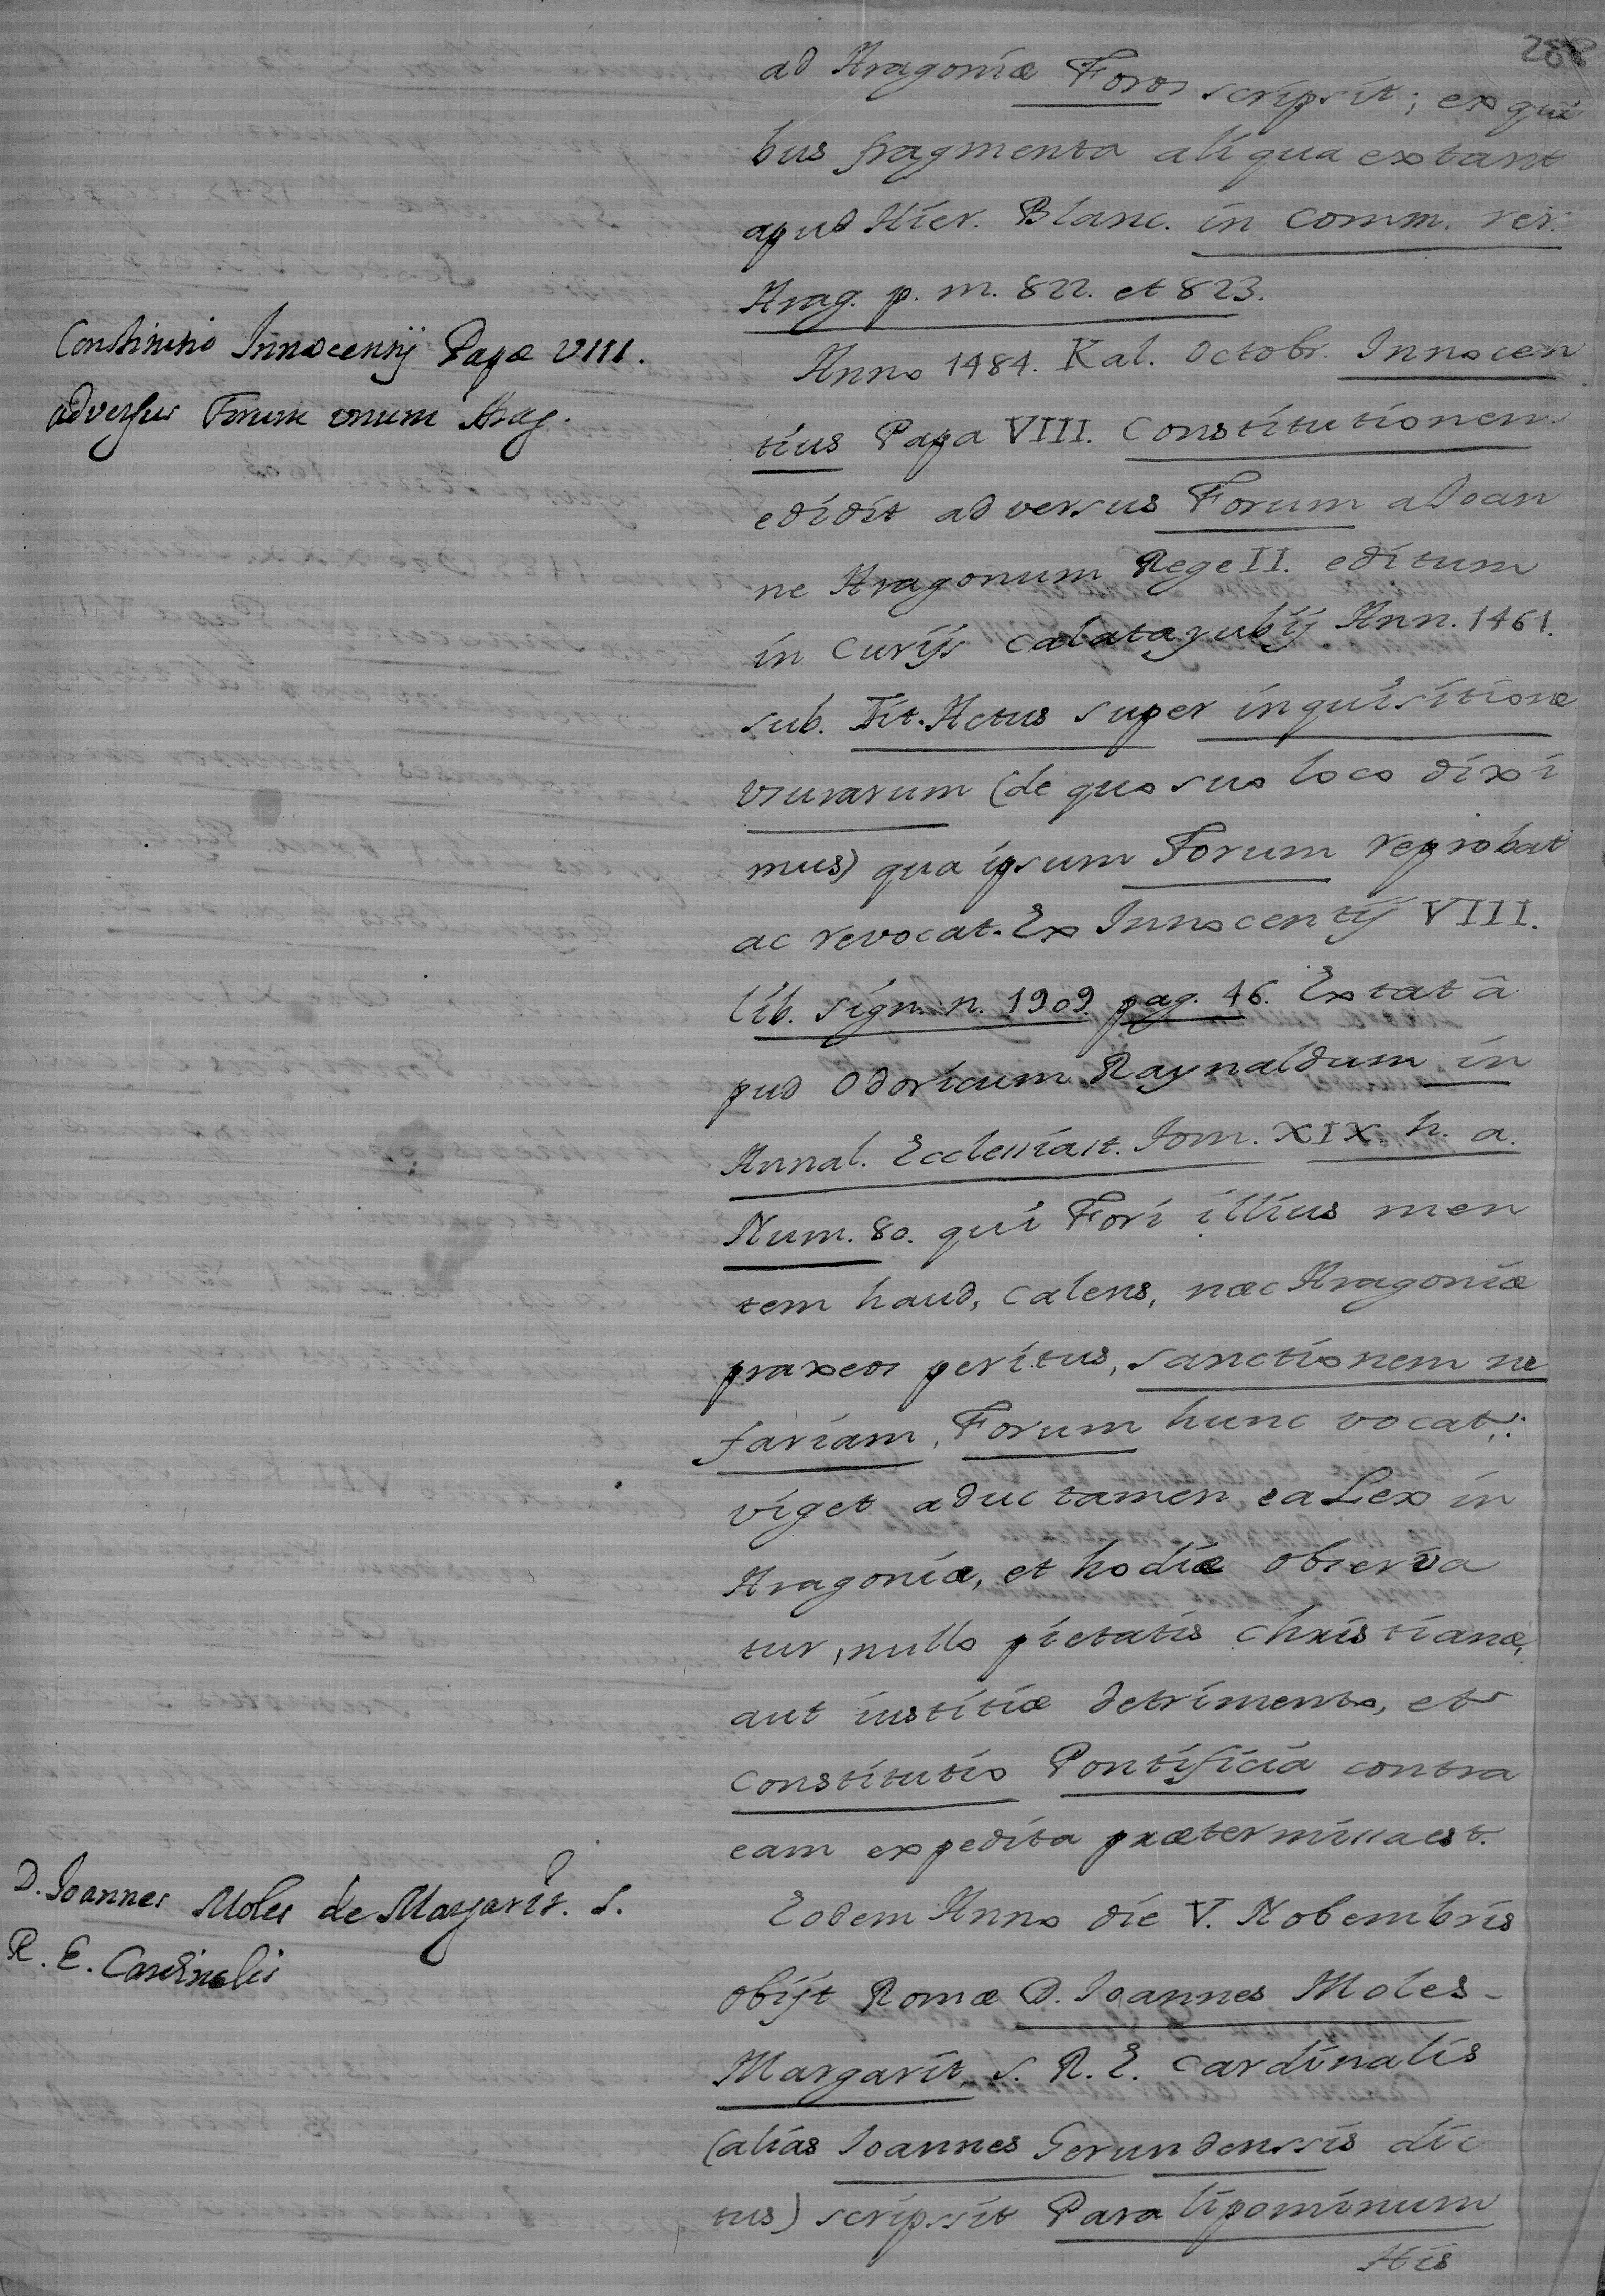 ad Aragoniæ Foros scripsit; ex qui
bus fragmenta aliqua extant
apud Hier. Blanc. in Comm. rer.
Arag. p. m. 822. et 823.
Constitutio Innocentij Papæ VIII.
adversus Forum unum Arag.
Anno 1484. Kal. Octobr. Innocen
tius Papa VIII. Constitutionem
edidit adversus Forum a Joan
ne Aragonum Rege II. editum
in Curijs Calatayubij Ann. 1461.
sub. Tit. Actus super inquisitione
usurarum (de quo suo loco dixi
mus) qua ipsum Forum reprobat
ac revocat. Ex Innocentij VIII.
lib. sign. n. 1909. pag. 46. Extat a
pud Odoricum Raynaldum in
Annal. Ecclesiast. Tom. XIX. h. a.
Num. 80. qui Fori illius men
tem haud, calens, næc Aragoniæ
praxeos peritus, sanctionem ne
fariam, Forum hunc vocat;
viget aduc tamen ea Lex in
Aragoniæ, et hodiæ observa
tur, nullo pietatis christianæ,
aut iustitiæ detrimento, et
Constitutio Pontificia contra
eam expedita prætermissa est.
D. Joannes Moles de Margarit. S.
R. E. Cardinalis
Eodem Anno die V. Nobembris
obijt Romæ D. Joannes Moles
Margarit, S. R. E. Cardinalis
(alias Joannes Gerundenssis dic
tus) scripssit Paralipominum
His